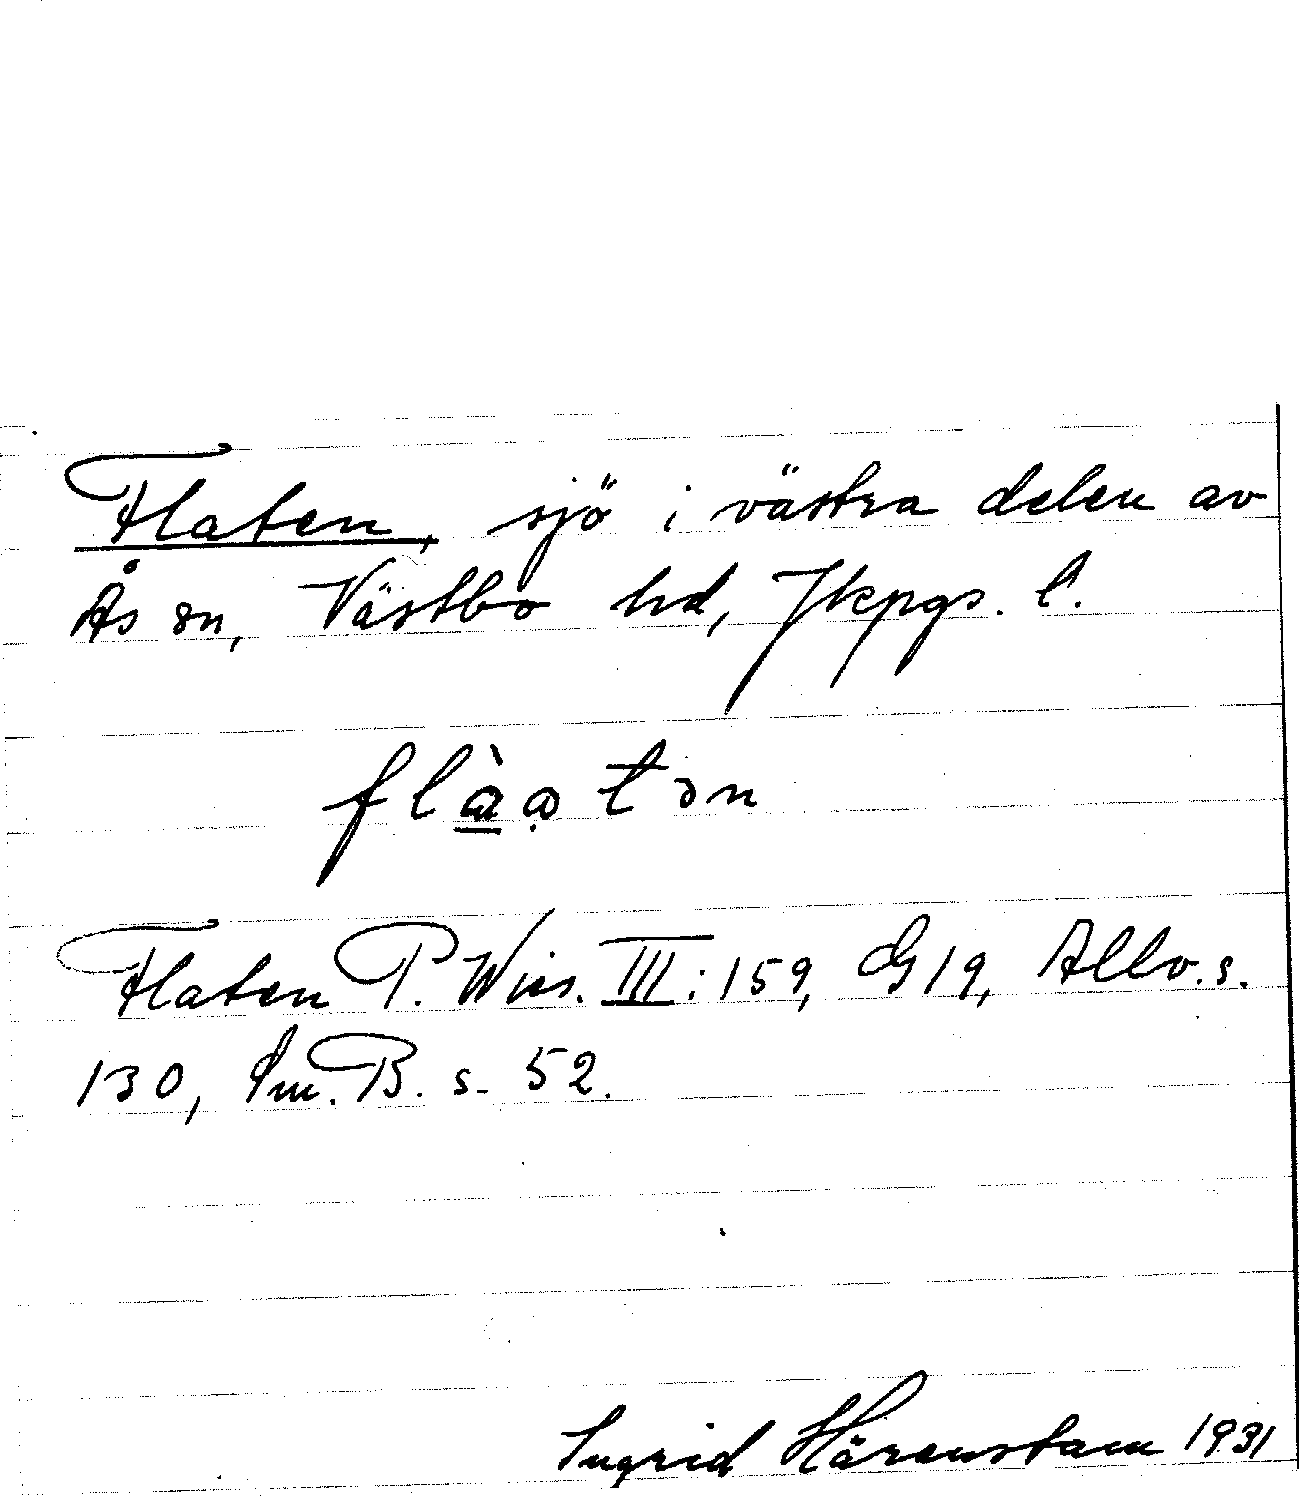 Flaten, sjö i västra delen av
Ås sn, Västbo hd, Jkpgs. l.
flàatən
Flaten P. Wies. III:159, G19, Allv.s.
130, Sm.B. s. 52.
Ingrid Härenstam 1931